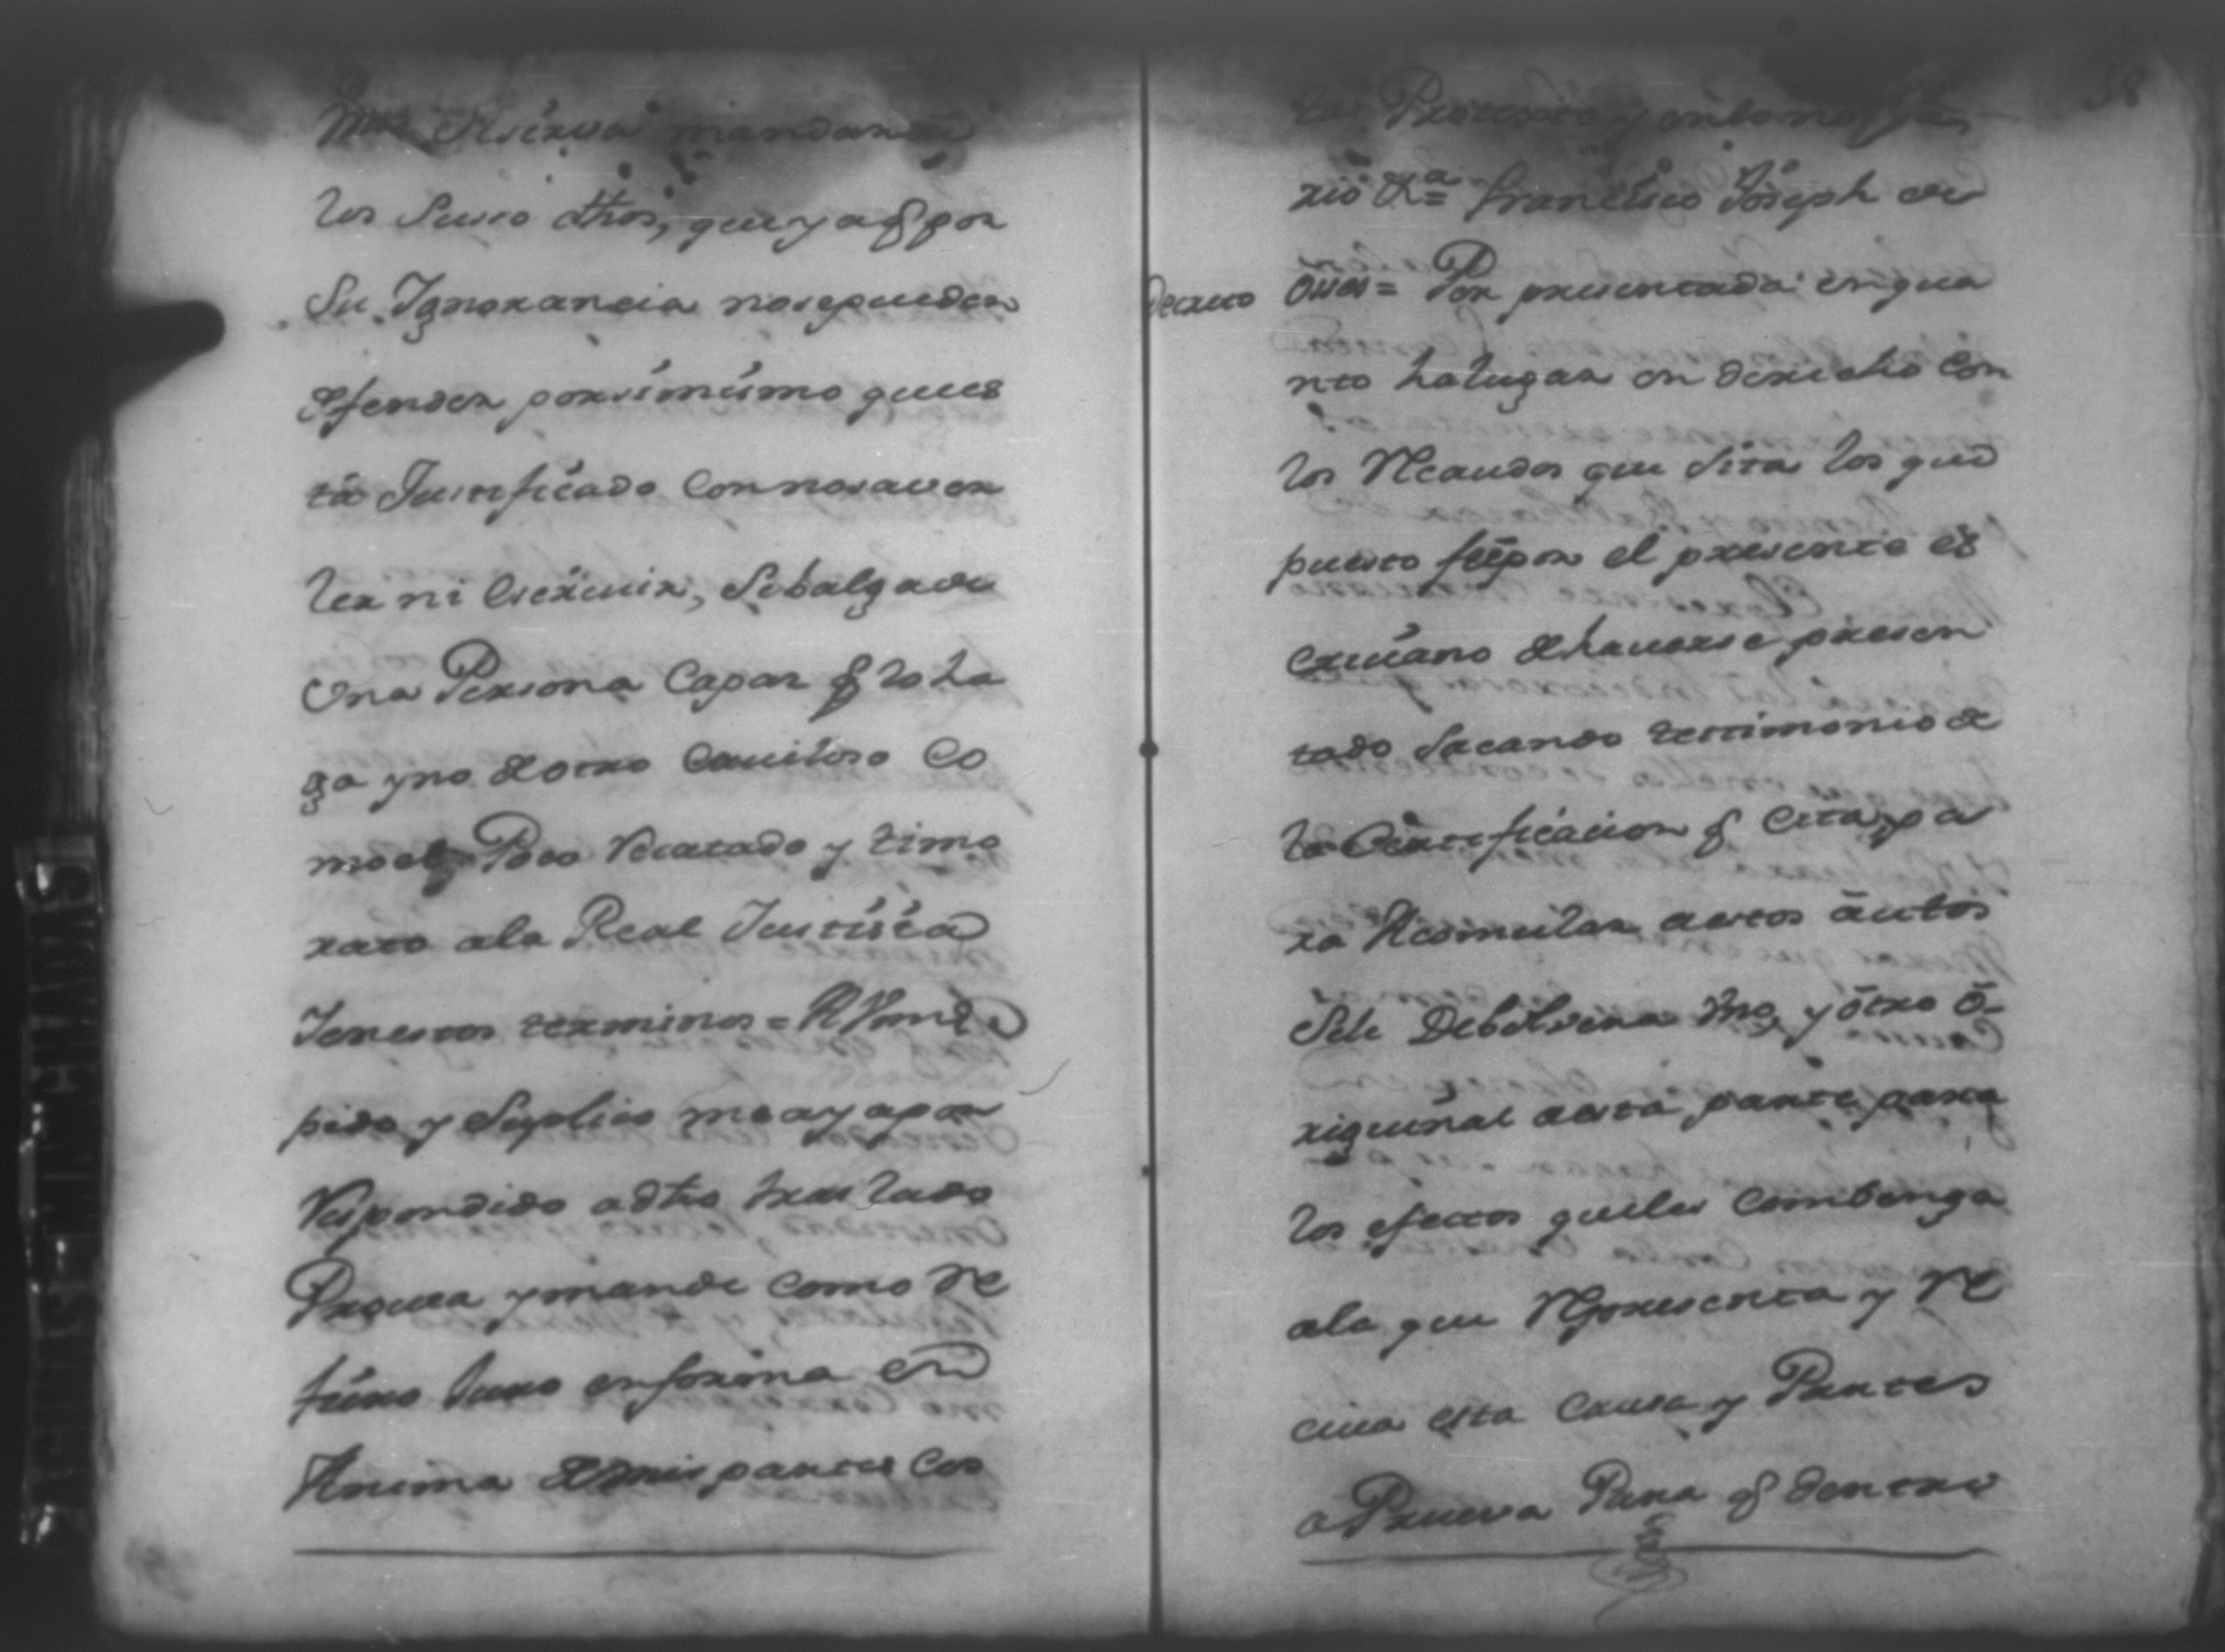 mandar a
los Suso dthos, que ya q̃ por
Su Ygnorancia nosepueden
Efender por simismo que es
ta Justificado Con no saver
ler ni escrevir, Sebalga de
Una Persona Capaz q̃ lo ha
ga y no de otro Caviloso Co
mo el Poco Recatado y timo
rato ala Real Justisia
Yen estos terminos =
pido y Suplico me aya por
Respondido a dho traslado
Provea y mande Como Re
fiero Juro en forma en
Anima de mis partes Cos
58
tas Protexto y en lo nesesa
rio &ª= Francisco Joseph de
Decreto
Osses= Por presentada en qua
nto ha lugar en derecho Con
los Recaudos que Sita los que
puesto feé por el presente es
crivano de haverse presen
tado Sacando testimonio de
la Certificacion q̃ Cita, pa
ra Acomular a estos autos
Sele Debolvera Uno, y otro o-
riguinal a esta parte para
los efectos que les Combenga
ala que Representa y Re
civa esta Causa y Partes
a Prueva Para q̃ dentro